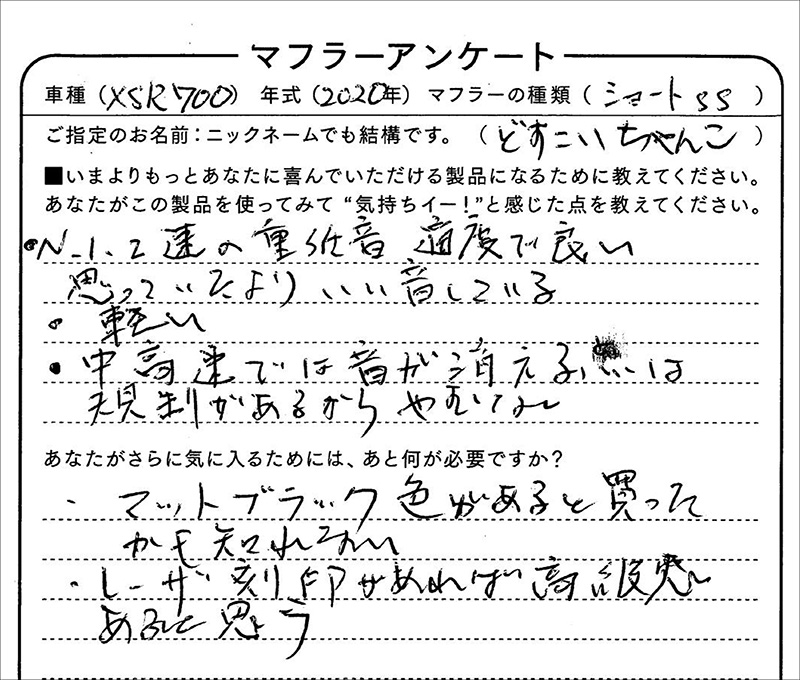 マフラーアンケート
車種（XSR700） 年式（2020年） マフラーの種類（ショートSS）
ご指定のお名前：ニックネームでも結構です。（どすこいちゃんこ）
■いまよりもっとあなたに喜んでいただける製品になるために教えてください。
あなたがこの製品を使ってみて“気持ちイー！”と感じた点を教えてください。
・N-1.2速の重低音 適度で良い
思っていたよりいい音している
・軽い
・中高速では音が消える は
規制があるからやむない
あなたがさらに気に入るためには、あと何が必要ですか？
・マットブラック色があると買った
かも知れない
・レーザ刻印があれば高級感
あると思う